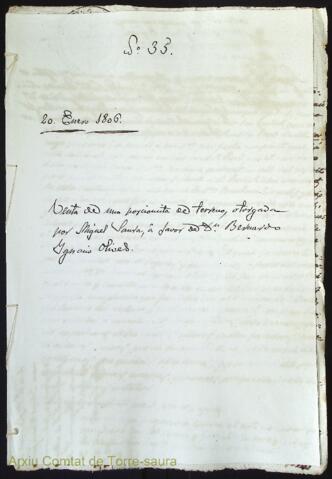 Nº 35.
20. Enero 1806.
Venta de una porcionita de terreno, otorgada
por Miguel Saura, â favor de Dⁿ Bernardo
Ygnacio Olives.
Apxiu Comtat de Torre-saura